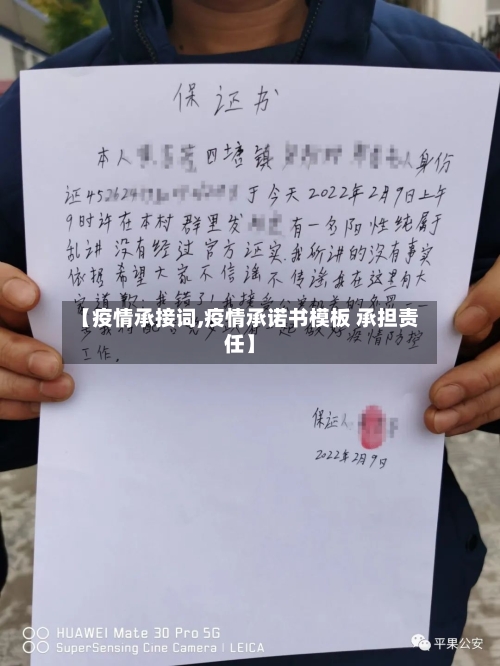 保证书
本人 四塘镇 人身份
证 于今天2022年2月9日上午
9时许在本村群里发 有一名阳性纯属
乱讲没有经过官方证实,我所讲的没有事实
依据希望大家不信谣不传谣,我在这里向大
家道歉:我错了!我接受公安机关的
【疫情承接词,疫情承诺书模板 承担责
任】
疫情防控
工作。
保证人
2022年2月9日
HUAWEI Mate 30 Pro 5G
SuperSensing Cine Camera | LEICA
平果公安